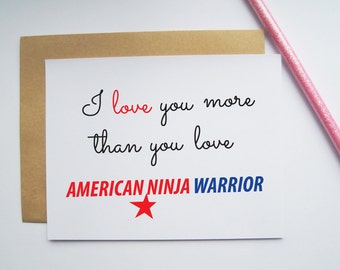 I love you more
than you love
AMERICAN NINJA WARRIOR